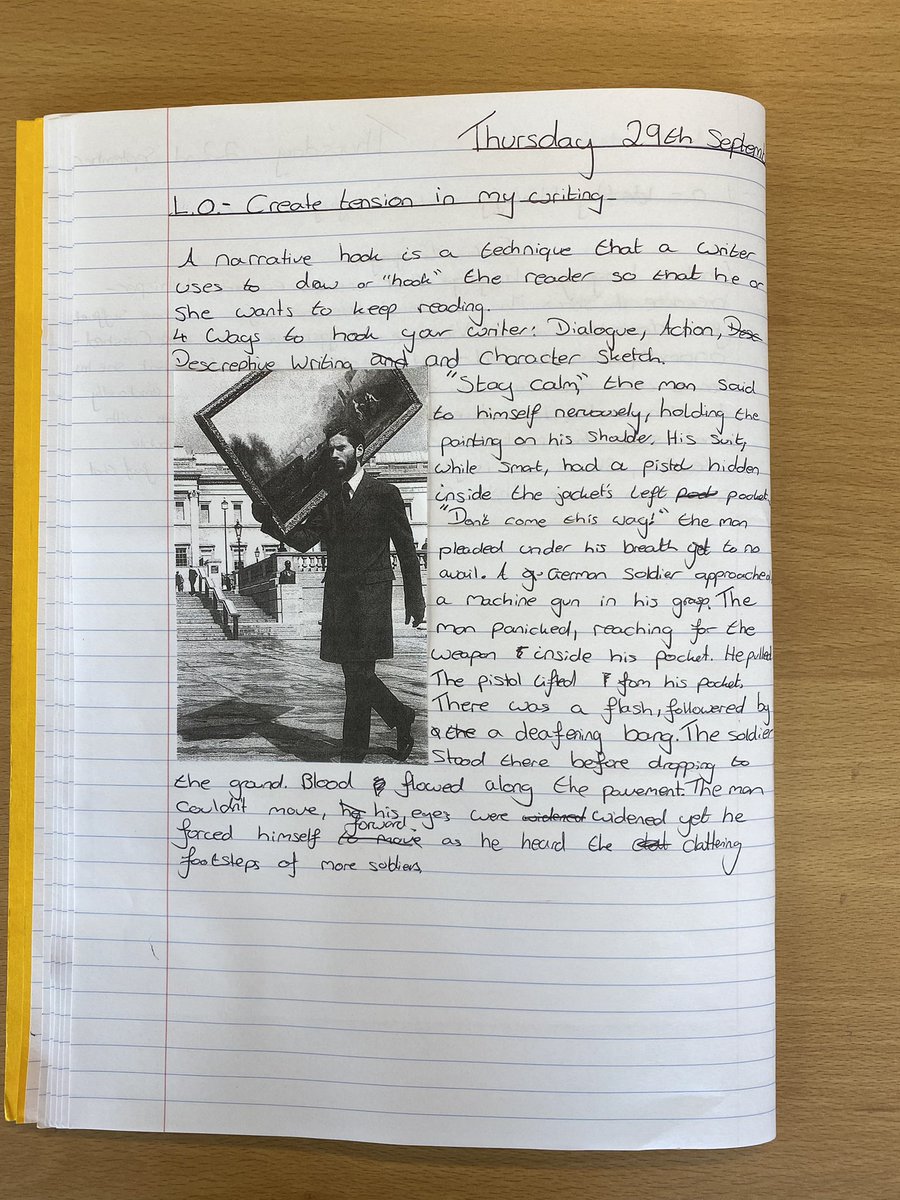 Thursday 29th Septem
L.O.- Create tension in my writing
A narrative hook is a technique that a writer
uses to daw or "hook" the reader so that he or
she wants to keep reading.
4 ways to hook your writer: Dialogue, Action, Desc
Descreptive Writing and and Character Sketch.
"Stay calm," the man said
to himself nervously, holding the
painting on his shoulder. His suit,
while smat, had a pistol hidden
inside the jacket's left pock pocket.
"Don't come this way!" the man
pleaded under his breath yet to no
avail. A g German soldier approached
a machine gun in his grasp. The
man panicked, reaching for the
weapon inside his pocket. He pulled
The pistol lifted from his pocket.
There was a flash, followed by
the a deafening bang. The soldier
stood there before dropping to
the grand. Blood flowed along the pavement. The man
couldn't move, he his eyes were widened widened yet he
forced himself to move forward as he heard the clat clattering
footsteps of more soldiers.